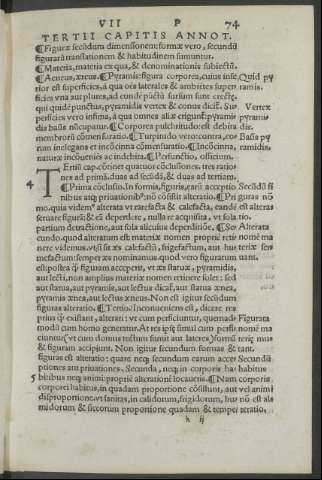 VII P 74
TERTII CAPITIS ANNOT.
¶Figuræ secũdum dimensionem: formæ vero, secundũ
figuratã translationem & habitudinem sumuntur.
¶Materia, materia ex qua, & denominationis subiectũ.
¶Aeneus, æreus. ¶Pyramis: figura corporea, cuius infe Quid py
rior est superficies, à qua oẽs laterales & ambiẽtes super ramis.
ficies vna aut plures, ad eundẽ pũctũ sursum sunt erectę.
qui quidẽ punctus, pyramidis vertex & conus dicit. Su Vertex
perficies vero infima, à qua omnes aliæ erigunt: pyrami pyrami⸗
dis basis nũcupatur. ¶Corporea pulchritudo: est debita dis.
membrorũ cõmensuratio. ¶Turpitudo vero: contra, eo Basis py
rum inelegans et incõcinna cõmensuratio. ¶Incõcinna, ramidis.
naturæ incõueniẽs ac indebita. ¶Perfunctio, officium.
TErtiũ cap. cõtinet quatuor cõclusiones. tres ratio⸗
nes ad primã. duas ad secũdã, & duas ad tertiam.
4 ¶Prima cõclusio. In formis, figuris, earũ acceptio Secũdũ fi
nibus atq; priuationibᵒ: nõ cõsistit alteratio. ¶Pri guras nõ
mo. quia videmᵒ alterata vt rarefacta & calefacta, eandẽ est altera⸗
seruare figurã: & eã deperdere, nulla re acquisita, vt sola tio.
partium detractione, aut sola alicuius deperditiõe. ¶Se⸗ Alterata
cundo. quod alteratum est materiæ nomen proprie reti⸗ nomẽ ma
nere videmus. vt si sit æs calefactũ, frigefactum, aut hu⸗ teriæ ser⸗
mefactum: semper æs nominamus. quod vero figurarum uant.
est: postea q̃ figuram accepere, vt æs statuæ, pyramidis,
aut lecti, non amplius materiæ nomen retinere solet: sed
aut statua, aut pyramis, aut lectus dicit, aut statua ænea,
pyramis ænea, aut lectus æneus. Non est igitur secũdum
figuras alteratio. ¶Tertio. Inconueniens est, dicere res
prius q̃ existant, alterari: vt cum perficiuntur, quemad⸗ Figurata
modũ cum homo generatur. At res ipsę simul cum perfi⸗ nomẽ ma
ciuntur (vt cum domus tectum sumit aut lateres) formã terię mu⸗
& figuram accipiunt. Non igitur secundum formas & tant.
figuras est alteratio: quare neq; secundum earum acce⸗ Secundũ
ptiones aut priuationes. Secunda, neq; in corporis ha⸗ habitus
5 bitibus neq; animi: proprie alterationẽ locaueris. ¶Nam corporis
corporei habitus, in quadam proportione cõsistunt, aut vel animi
disproportione. vt sanitas, in calidorum, frigidorum, hu⸗ nõ est alte
midorum & siccorum proportione quadam & tempe⸗ ratio.
k ij